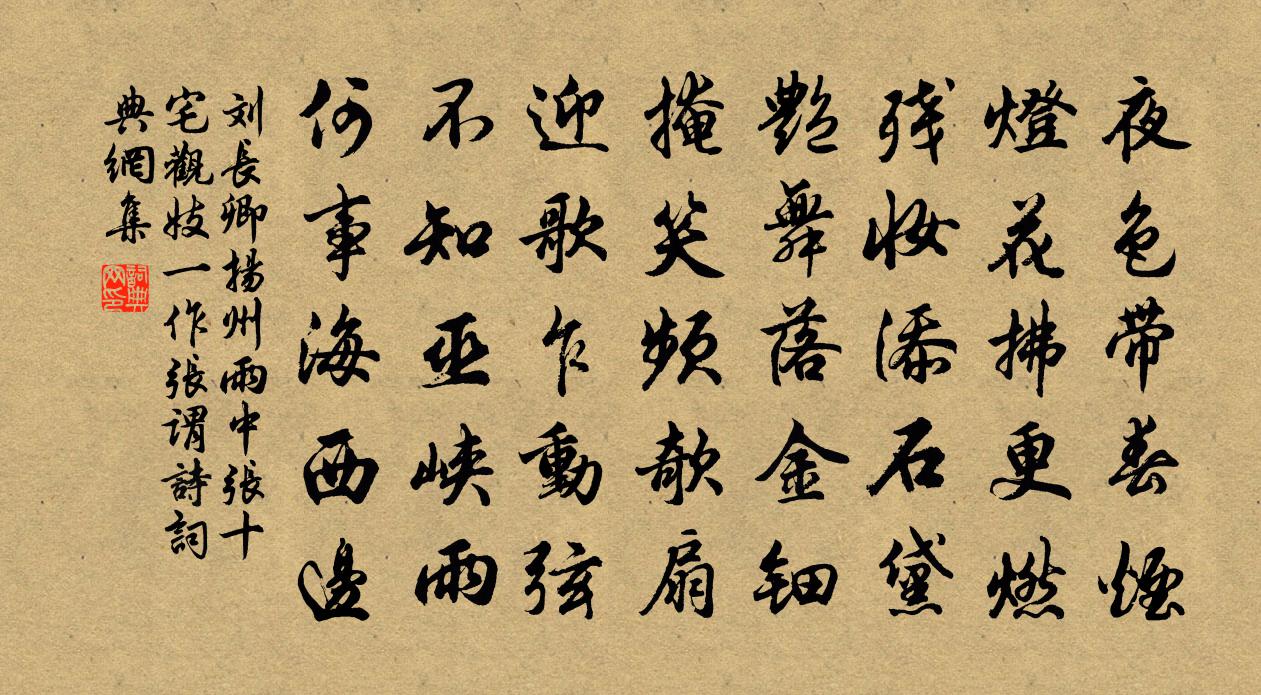 夜色带春煙
燈花拂更燃
残妝添石黛
艷舞落金鈿
掩笑頻欹扇
迎歌乍動弦
不知巫峽雨
何事海西邊
刘長卿揚州雨中張十
宅觀妓一作張謂詩詞
典網集
詞典
网印